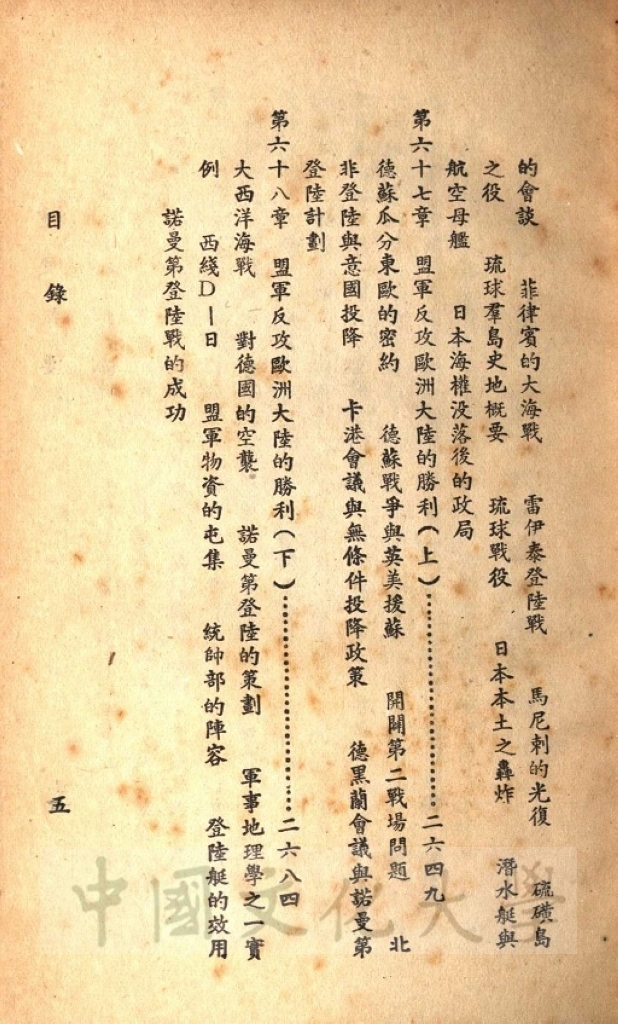 的會談　菲律賓的大海戰　雷伊泰登陸戰　馬尼剌的光復　硫磺島
之役　琉球羣島史地概要　琉球戰役　日本本土之轟炸　潛水艇與
航空母艦　日本海權没落後的政局
第六十七章　盟軍反攻歐洲大陸的勝利（上）……………………二六四九
德蘇瓜分東歐的密約　德蘇戰爭與英美援蘇　開闢第二戰場問題　北
非登陸與意國投降　卡港會議與無條件投降政策　德黑蘭會議與諾曼第
登陸計劃
第六十八章　盟軍反攻歐洲大陸的勝利（下）……………………二六八四
大西洋海戰　對德國的空襲　諾曼第登陸的策劃　軍事地理學之一實
例　西綫D－日　盟軍物資的屯集　統帥部的陣容　登陸艇的效用
諾曼第登陸戰的成功
目錄　五
中國文化大學